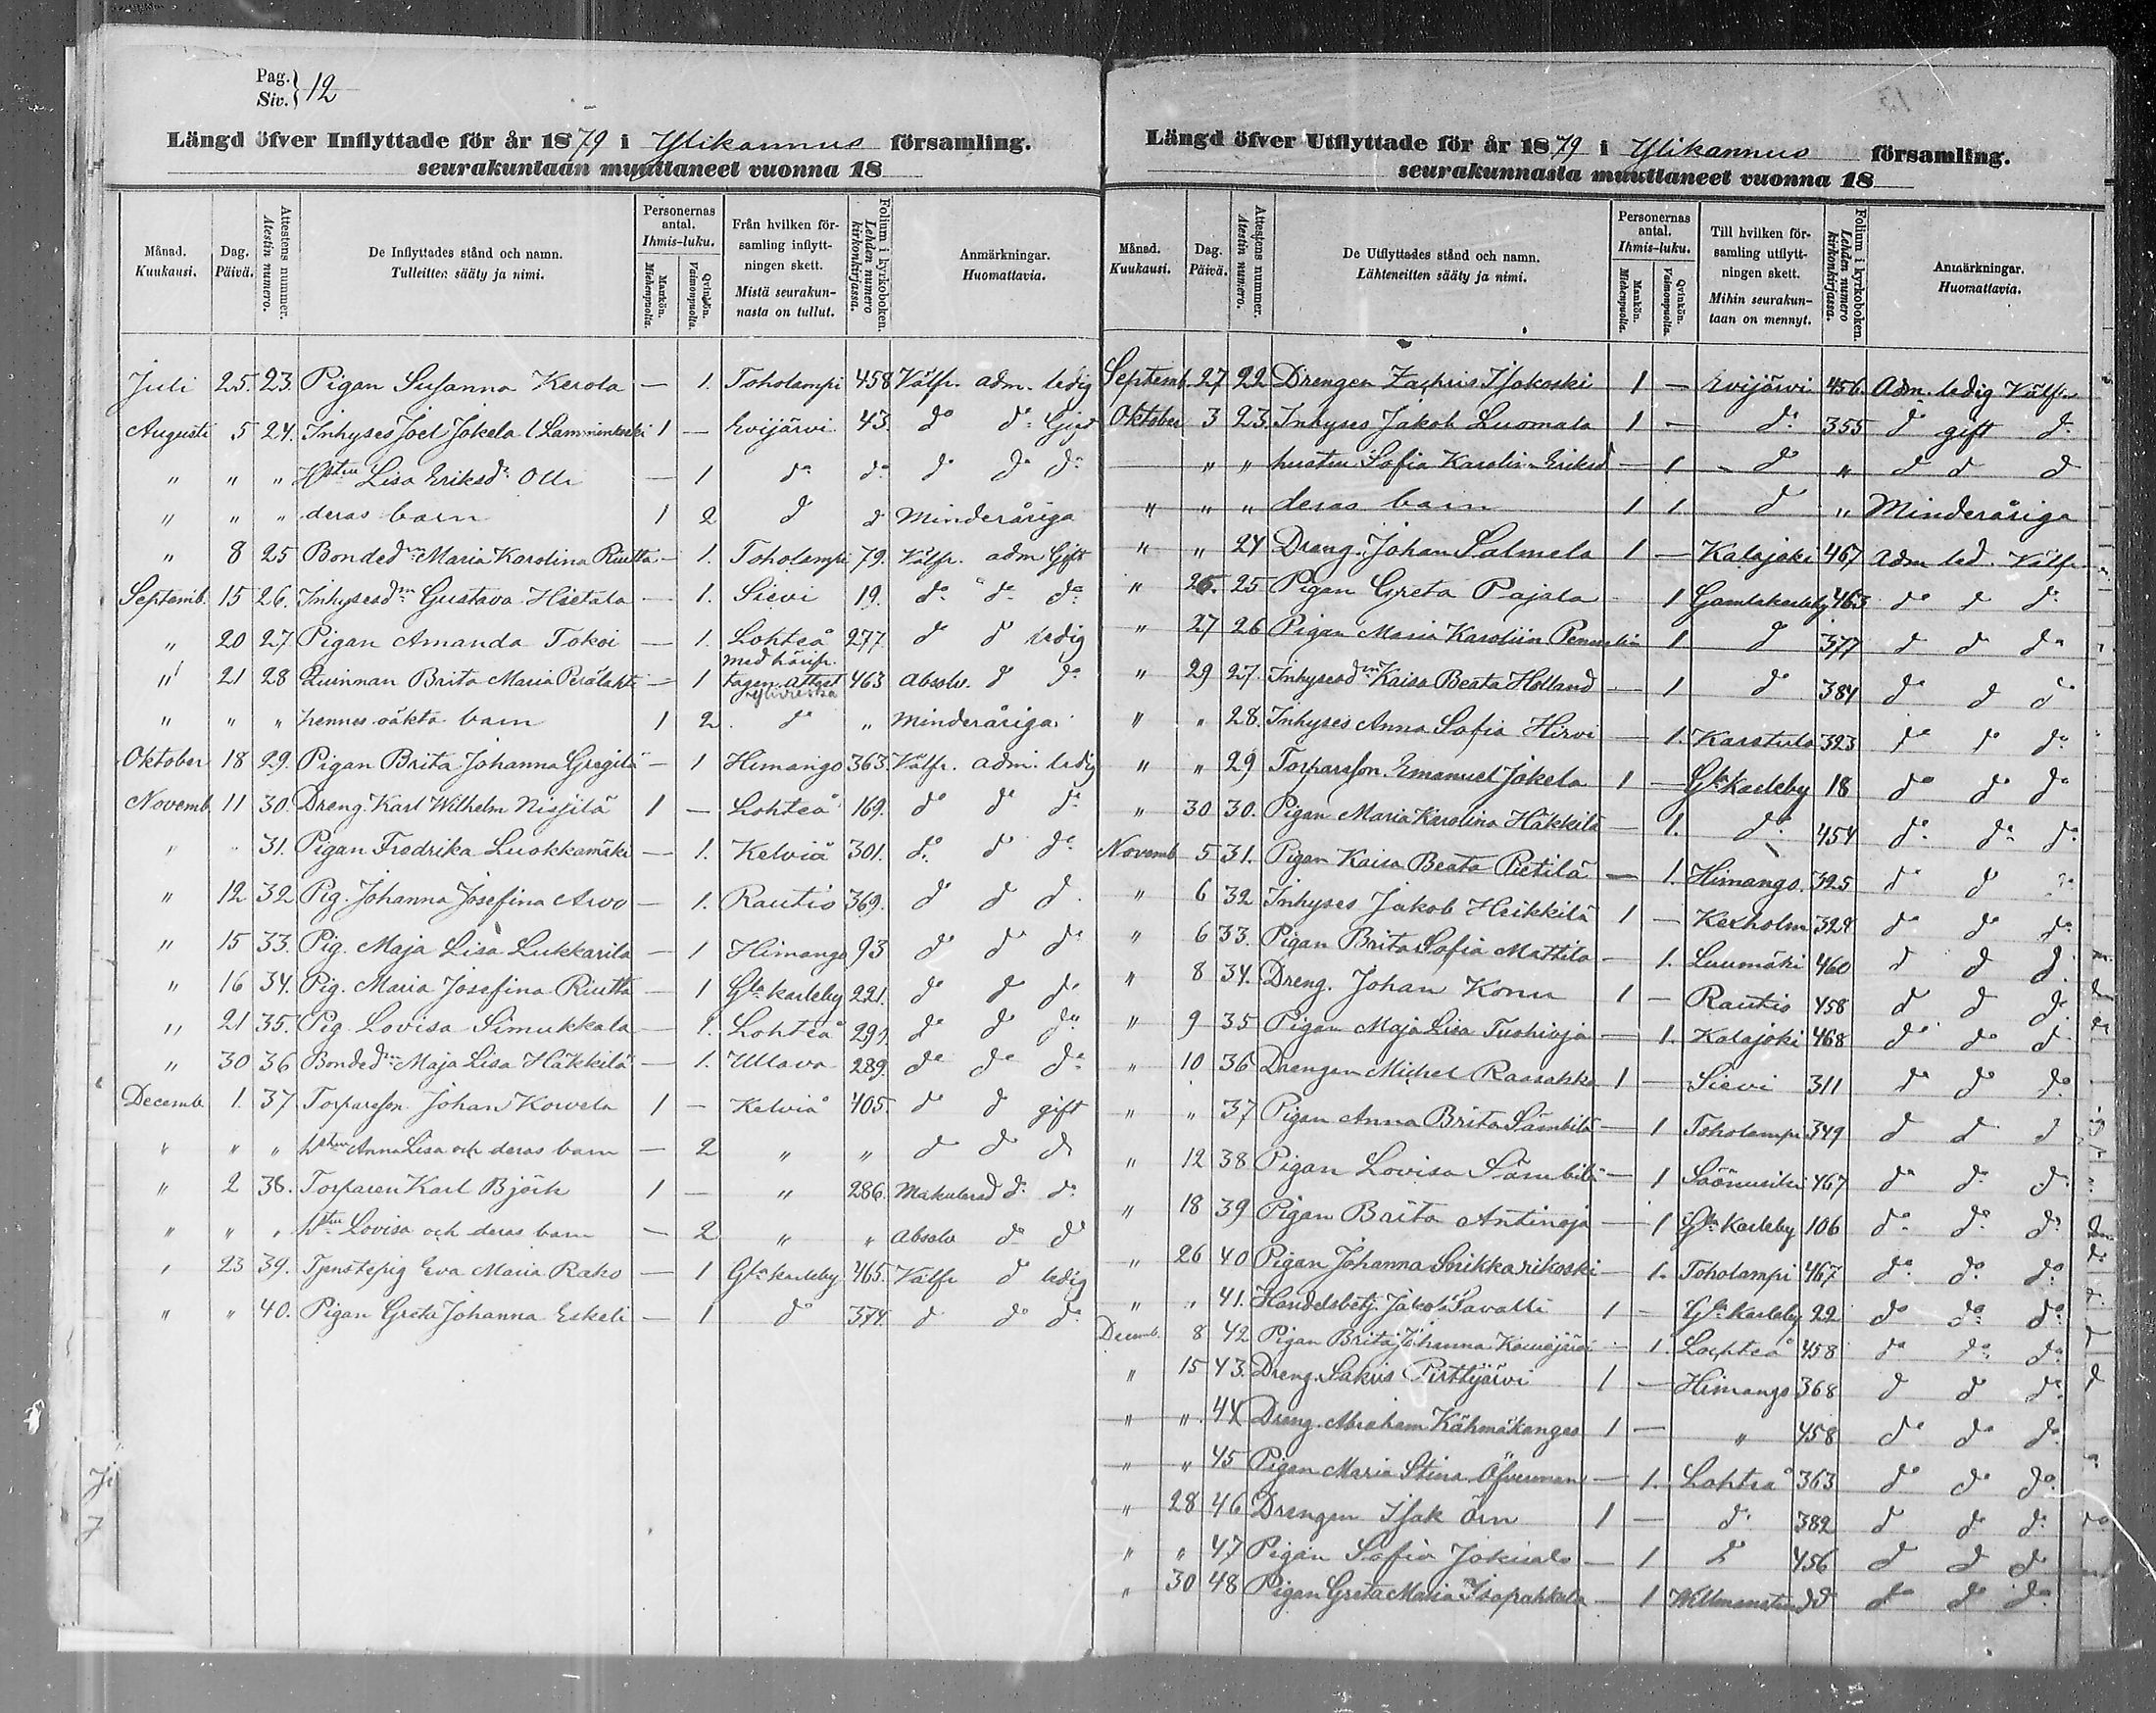 Pag. } 12
Siv.
Längd öfver Inflyttade för år 1879 i Ylikannus församling.
seurakuntaan muuttaneet vuonna 18
Månad. Kuukausi. Dag. Päivä. Attestens nummer. Atestin numero. De Inflyttades stånd och namn. Tulleitten sääty ja nimi. Personernas antal. Ihmis-luku. Mankön. Miehenpuolia. Qvinkön. Vaimonpuolia. Från hvilken församling inflyttningen skett. Mistä seurakunnasta on tullut. Folium i kyrkoboken. Lehden numero kirkonkirjassa. Anmärkningar. Huomattavia.
Juli 25. 23. Pigan Susanna Kerola — 1. Toholampi 458 Välfr. adm. ledig
Augusti 5 24. Inhyses Joel Jokela l. Lamminkoski 1 — Evijärvi 43. do do Gift
" " " Hstru Lisa Eriksdr Olli — 1 do do do do do
" " " deras barn 1 2 d d Minderåriga
" 8 25 Bondedn Maria Karolina Riutta — 1. Toholampi 79. Välfr. adm Gift
Septemb. 15 26. Inhysesdn Gustava Hietala — 1. Sievi 19. do do do
" 20 27. Pigan Amanda Tokoi — 1. Lohteå 277 d d ledig
" 21 28 Qvinnan Brita Maria Perälahti — 1 med härifr. tagen attest Ylivieska 463 Absolv. d do
" " " hennes oäkta barn 1 2. do " Minderåriga
Oktober 18 29. Pigan Brita Johanna Gregilä — 1 Himango 363. Välfr. adm. ledig
Novemb 11 30. Dreng. Karl Wilhelm Nisjilä 1 — Lohteå 169. do do do
" " 31. Pigan Fredrika Luokkamäki — 1. Kelviå 301. d. d do
" 12 32 Pig. Johanna Josefina Arvo — 1. Rautio 369. d d d
" 15 33. Pig. Maja Lisa Lukkarila — 1 Himango 93 d do do
" 16 34. Pig. Maria Josefina Riutta — 1 Gla Karleby 221. do d do
" 21 35. Pig. Lovisa Simukkala — 1. Lohteå 299. do d do
" 30 36 Bondedn Maja Lisa Häkkilä — 1. Ullava 289. do do do
Decemb. 1. 37 Torpareson Johan Korvela 1 — Kelviå 405. do d gift
" " " hstru Anna Lisa och deras barn — 2 " " d d d
" 2 38. Torparen Karl Björk 1 — " 286. Makulerad d. do
" " " hstru Lovisa och deras barn — 2 " " Absolv do d
" 23 39. Tjenstepig Eva Maria Rako — 1 Gla Karleby 465. Välfr d ledig
" " 40. Pigan Greta Johanna Eskeli — 1 do 374. d do do
Längd öfver Utflyttade för år 1879 i Ylikannus församling.
seurakunnasta muuttaneet vuonna 18
Månad. Kuukausi. Dag. Päivä. Attestens nummer. Atestin numero. De Utflyttades stånd och namn. Lähteneitten sääty ja nimi. Personernas antal. Ihmis-luku. Mankön. Miehenpuolia. Qvinkön. Vaimonpuolia. Till hvilken församling utflyttningen skett. Mihin seurakuntaan on mennyt. Folium i kyrkoboken. Lehden numero kirkonkirjassa. Anmärkningar. Huomattavia.
Septemb. 27 22 Drengen Zachris Isokoski 1 — Evijärvi 456. Adm. ledig Välfr
Oktober 3 23. Inhyses Jakob Luomala 1 — do 355 d gift d.
— " " hustru Sofia Karolin. Eriksd — 1 d " d d d
" " " deras barn 1 1 d " Minderåriga
" " 24 Dreng. Johan Salmela 1 — Kalajoki 467 Adm led. Välfr
" 26. 25 Pigan Greta Pajala 1 Gamlakarleby 463 do d do
" 27 26 Pigan Maria Karoliin 1 d 377 d d do
" 29 27. Inhysesdn Kaisa Beata Holland — 1 do 384 do d do
" " 28. Inhyses Anna Sofia Hirvi — 1. Karstula 393 do do do
" " 29 Torpareson. Emanuel Jokela 1 — Gla Karleby 18 do do do
" 30 30. Pigan Maria Karolina Häkkilä — 1. do 454 do do do
Novemb 5 31. Pigan Kaisa Beata Pietilä — 1. Himango. 325 do d do
" 6 32 Inhyses Jakob Heikkilä 1 — Kexholm 329 do do do
" 6 33. Pigan Brita Sofia Mattila — 1. Luumäki 460 d d d.
" 8 34. Dreng. Johan Konu 1 — Rautio 458 d d do
" 9 35 Pigan Maja Lisa Tuohioja — 1. Kalajoki 468 do do d
" 10 36 Drengen Michel Raasakka 1 — Sievi 311 do do do
" " 37 Pigan Anna Brita Sämbilä — 1 Toholampi 349 d d d
" 12 38 Pigan Lovisa Sämbilä — 1 467 do do d.
" 18 39 Pigan Brita Antinoja — 1 Gla Karleby 106 do do do
" 26 40 Pigan Johanna Sorikkarikoski — 1. Toholampi 467 do do do
" " 41. Handelsbetj. Jakob Savalli 1 — Gla Karleby 22 do do do
Decemb. 8 42 Pigan Brita Johanna — 1. Lochteå 458 do do do
" 15 43. Dreng. Sakris Pirttijärvi 1 — Himango 368 d d do
" " 44 Dreng. Abraham Kähmäkangas 1 — " 458 do do do
" " 45 Pigan Maria Stina Öfverman — 1. Lohteå 363 do do do
" 28 46 Drengen Isak Örn 1 — do 382 d do do
" " 47 Pigan Sofia — 1 d 456 d d do
" 30 48 Pigan Greta Maria Isopahkala — 1 Willmanstrand d do do do